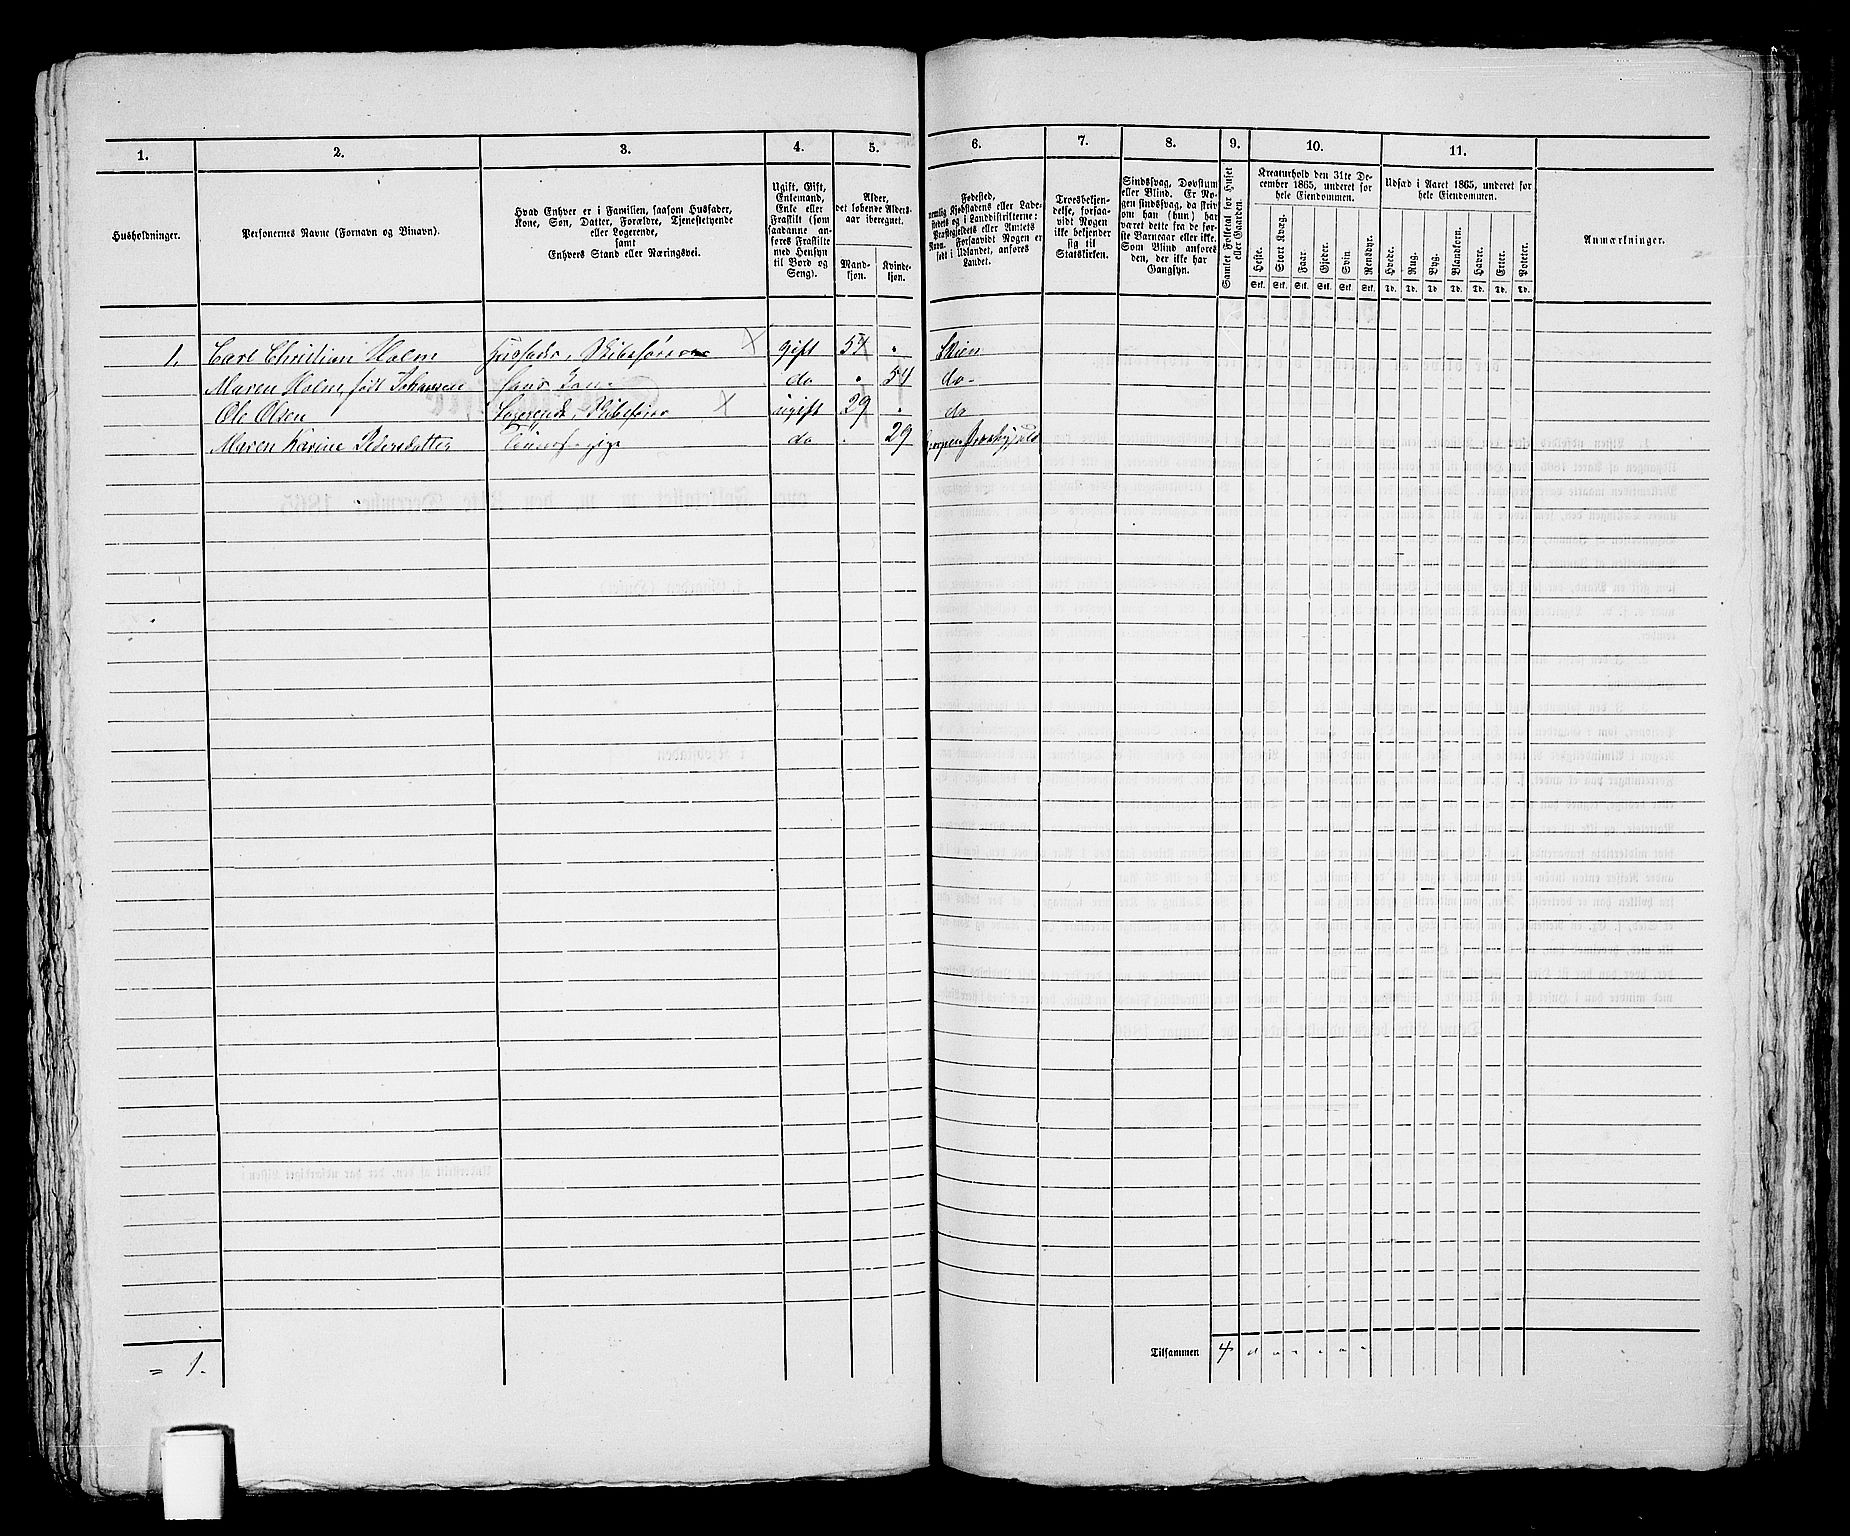 1.
2.
3.
4.
5.
6.
7.
8.
9.
10.
11.
Husholdninger.
Personernes Navne (Fornavn og Binavn).
Hvad Enhver er i Familien, saasom Husfader,
Kone, Søn, Datter, Forældre, Tjenestetyende
eller Logerende,
samt
Enhvers Stand eller Næringsvei.
Ugift, Gift,
Enkemand,
Enke eller
Fraskilt (som
saadanne an-
føres Fraskilte
med Hensyn
til Bord og
Seng).
Alder,
det løbende Alders-
aar iberegnet.
Mand-
kjøn.
Kvinde-
kjøn.
Fødested,
nemlig Kjøbstadens eller Lade-
stedets og i Landdistrikterne:
Præstegjeldets eller Amtets
Navn. Forsaavidt Nogen er
født i Udlandet, anføres
Landet.
Troesbekjen-
delse, forsaa-
vidt Nogen
ikke bekjender
sig til
Statskirken.
Sindssvag, Døvstum
eller Blind. Er No-
gen sindssvag, da skriv
om han (hun) har
været dette fra de før-
ste Barneaar eller ikke.
Som Blind anføres
den, der ikke har
Gangsyn.
Samlet Folketal for Huset
eller Gaarden.
Kreaturhold den 31te De-
cember 1865, underet for
hele Eiendommen.
Heste.
Stort Kvæg.
Faar.
Gjeder.
Svin
Rensdyr.
Stk. Stk. Stk. Stk. Stk. Stk.
Udsæd i Aaret 1865, underet for
hele Eiendommen.
Hvede.
Rug.
Byg.
Blandkorn.
Havre.
Erter.
Poteter.
Td. Td. Td. Td. Td. Td. Td.
Anmærkninger.
1. Carl Christian Holm Husfader, gift 54 Skien
Maren Holm, født Johansen hans Kone do 54 do
Ole Olsen Logerende, ugift 29 do
Maren Karine Pedersdatter Tjenestepige do 29 Gjerpen
= 1.
Tilsammen 4